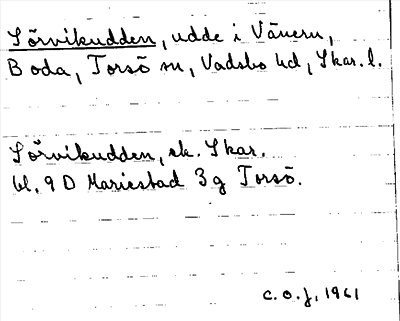 Sörvikudden, udde i Vänern,
Boda, Torsö sn, Vadsbo hd, Skar. l.
Sörvikudden, ek. Skar.
bl. 9 D Mariestad 3g Torsö.
C.O.J, 1961